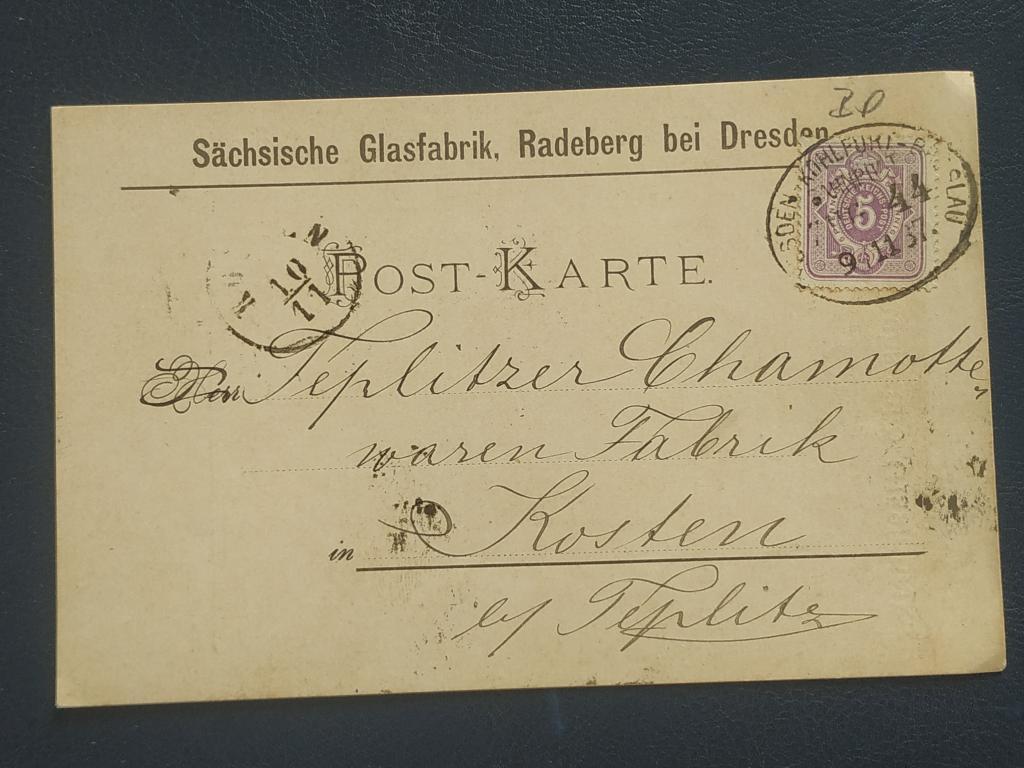 Sächsische Glasfabrik, Radeberg bei Dresden
SDEN-KOHLFURT-B SLAU
44
9 11
5
10
11
N
POST-KARTE.
Teplitzer Chamotte
waren Fabrik
in Kosten
b/ Teplitz